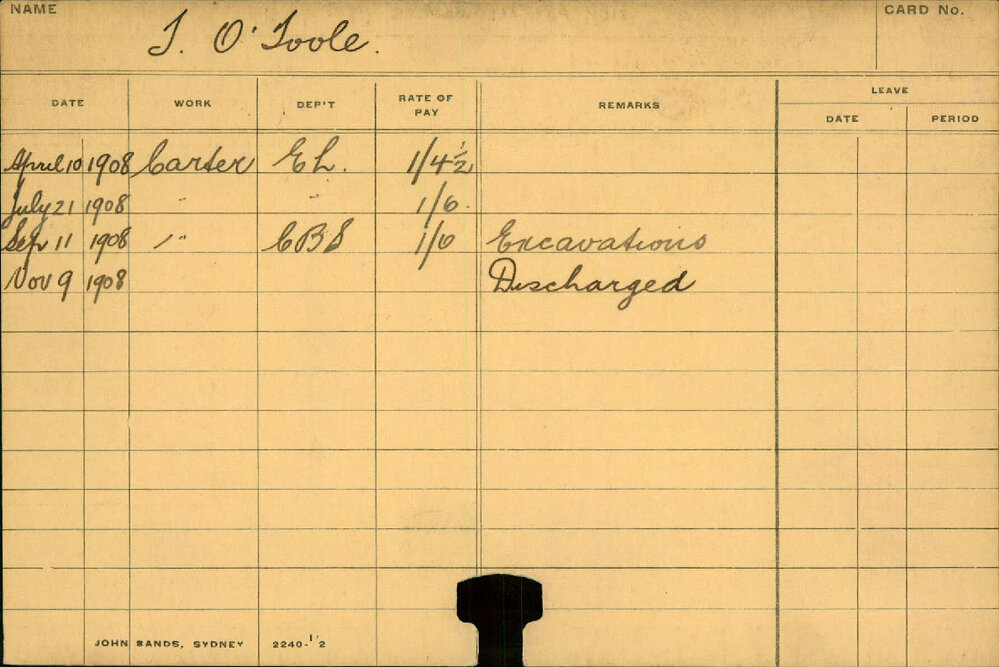 NAME T. O'Toole. CARD No.
DATE WORK DEP'T RATE OF PAY REMARKS LEAVE
DATE PERIOD
April 10 1908 Carter EL. 1/4½
July 21 1908 " " 1/6.
Sep 11 1908 " CBS 1/6 Excavations
Nov 9 1908 Discharged
JOHN SANDS, SYDNEY 2240-1'2